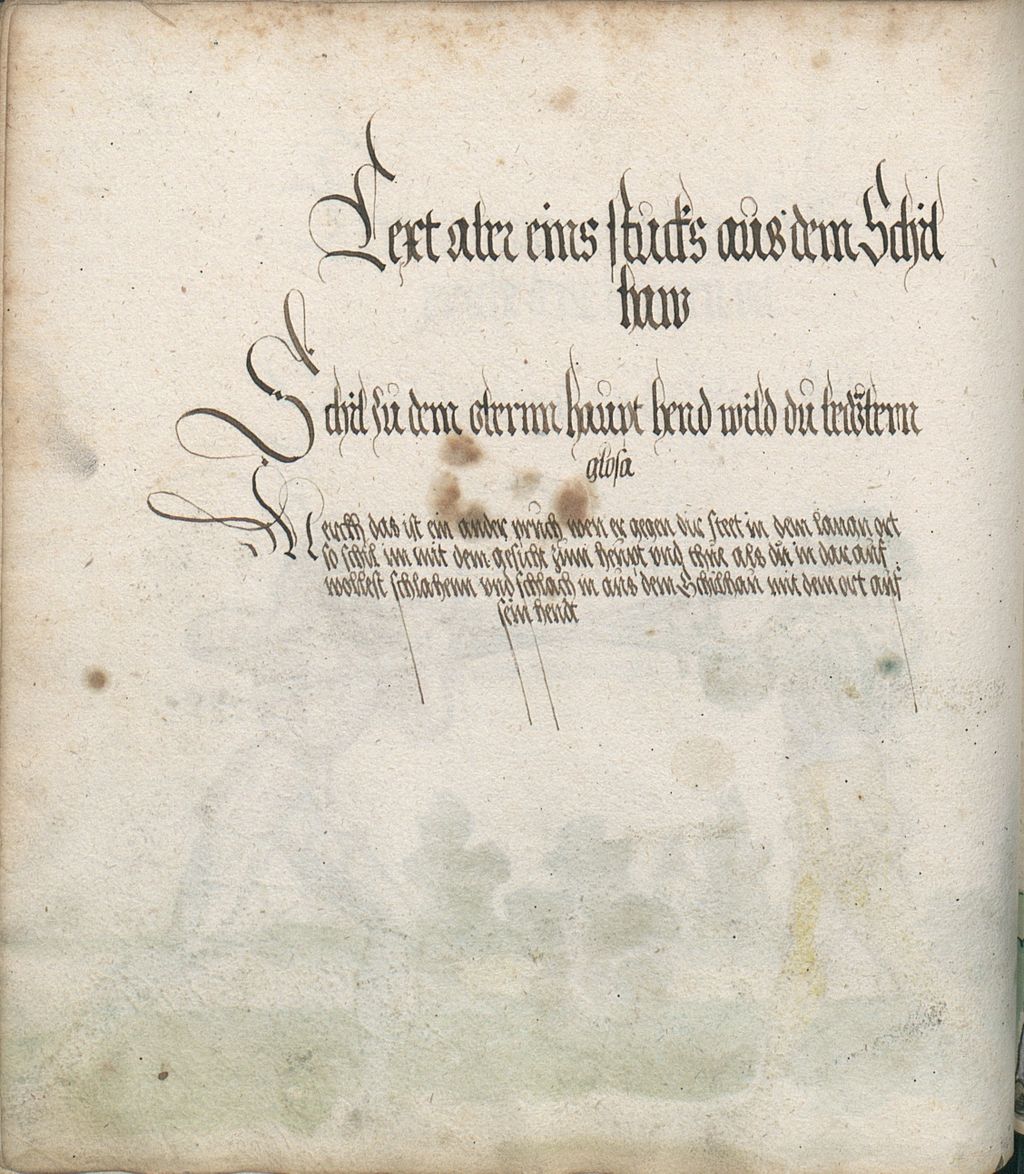 Text aber eins stucks aus dem Schil
haw
Schil zu dem obernn haupt hend wild du bedöbern
glosa
Merckh das ist ein ander pruch wen er gegen dir steet in dem langn ort
so schil im mit dem gesicht zum haupt vnd thue als du in dar auf
wollest schlahenn vnd schlach in aus dem Schilhau mit dem ort auf
sein hendt